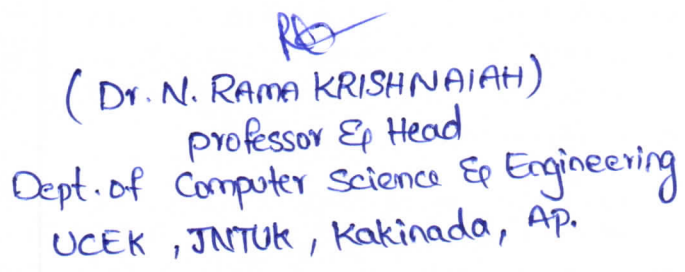 ( Dr. N. RAMA KRISHNAIAH)
professor & Head
Dept. of Computer Science & Engineering
UCEK , JNTUK , Kakinada, AP.